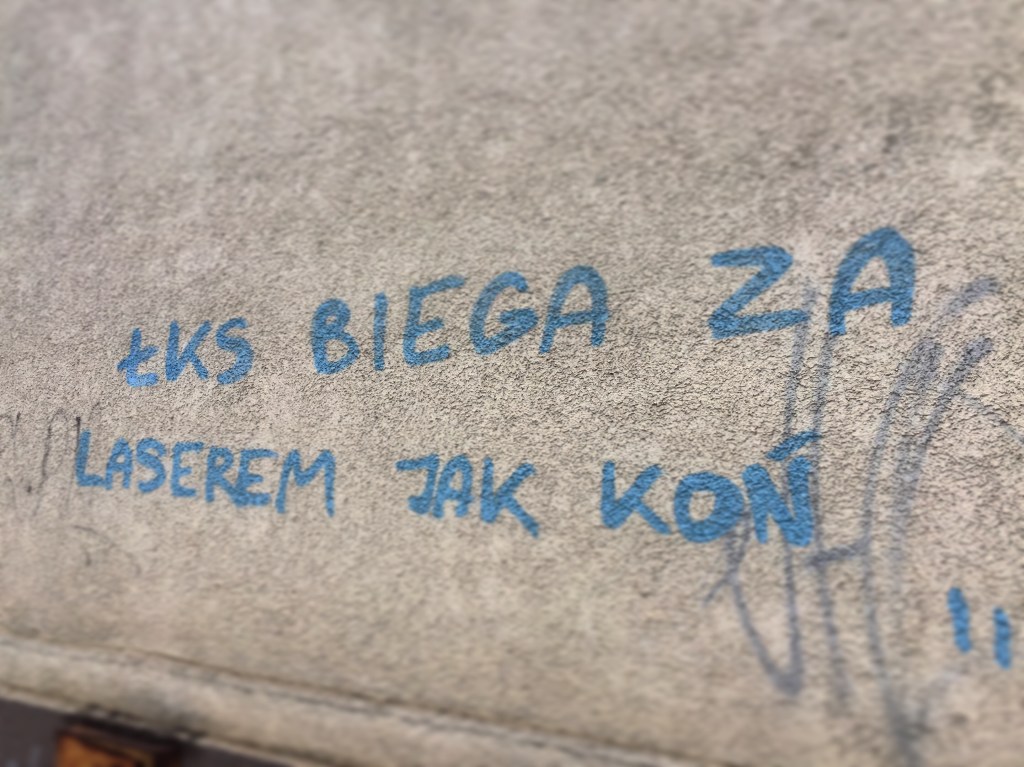 ŁKS BIEGA ZA
LASEREM JAK KOŃ